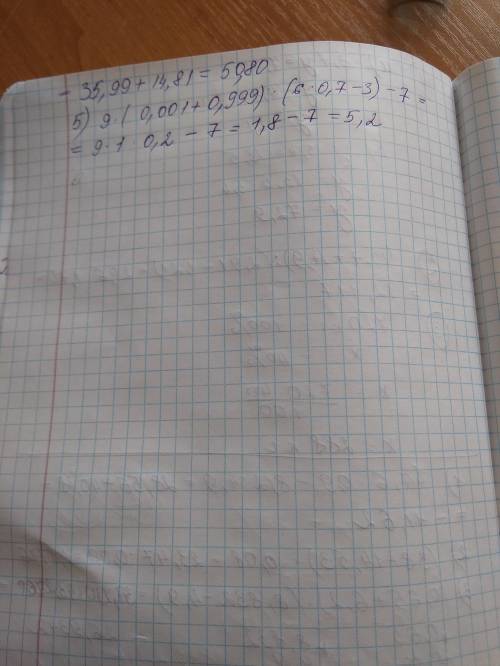 - 35,99 + 14,81 = 50,80
5) 9 · ( 0,001 + 0,999) · (6 · 0,7 - 3) - 7 =
= 9 · 1 · 0,2 - 7 = 1,8 - 7 = 5,2